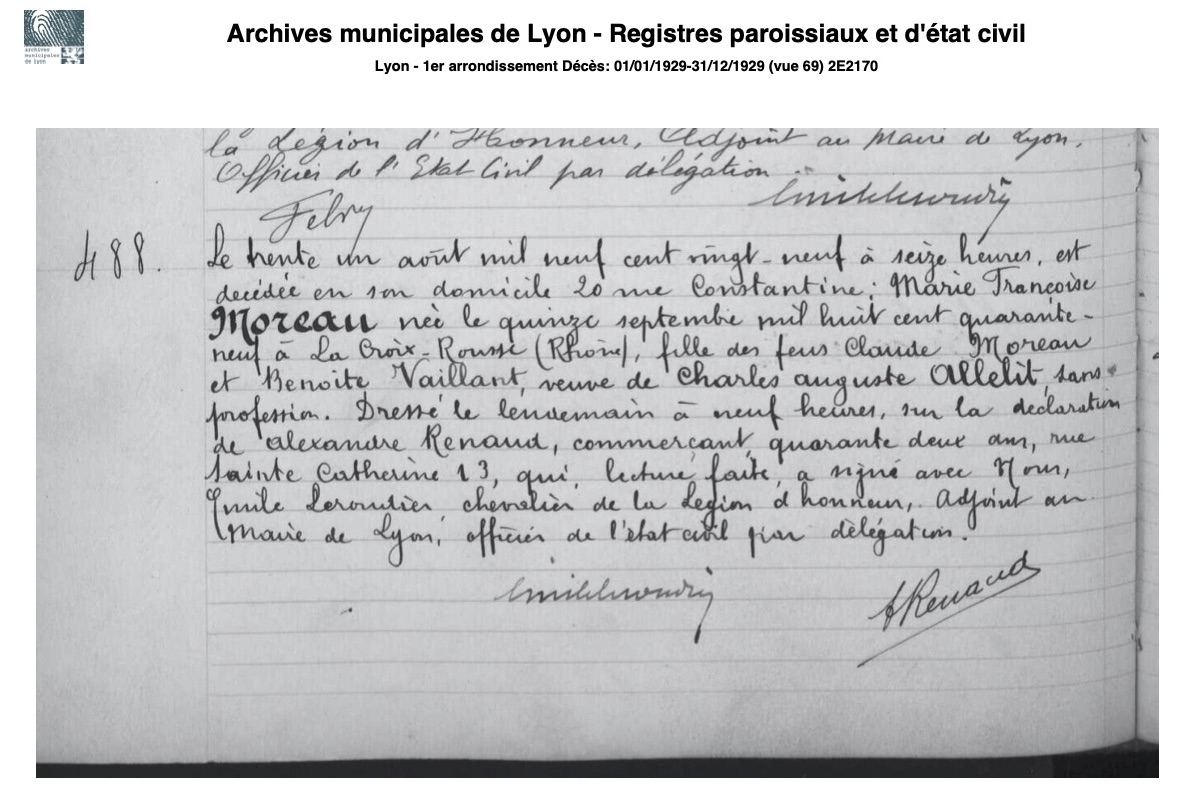 archives
municipales
de lyon
Archives municipales de Lyon - Registres paroissiaux et d'état civil
Lyon - 1er arrondissement Décès: 01/01/1929-31/12/1929 (vue 69) 2E2170
la Légion d'Honneur, Adjoint au Maire de Lyon,
Officier de l'Etat Civil par délégation
Febvy
488.
Le trente un août mil neuf cent vingt-neuf à seize heures, est
decédée en son domicile 20 rue Constantine: Marie Françoise
Moreau née le quinze septembre mil huit cent quarante-
neuf à La Croix-Rousse (Rhône), fille des feus Claude Moreau
et Benoite Vaillant, veuve de Charles auguste Allelit, sans
profession. Dressé le lendemain à neuf heures, sur la déclaration
de alexandre Renaud, commerçant, quarante deux ans, rue
Sainte Catherine 13, qui, lecture faite, a signé avec Nous,
Emile Leroudier, chevalier de la Legion d'honneur, Adjoint au
Maire de Lyon, officier de l'état civil par délégation.
ARenaud